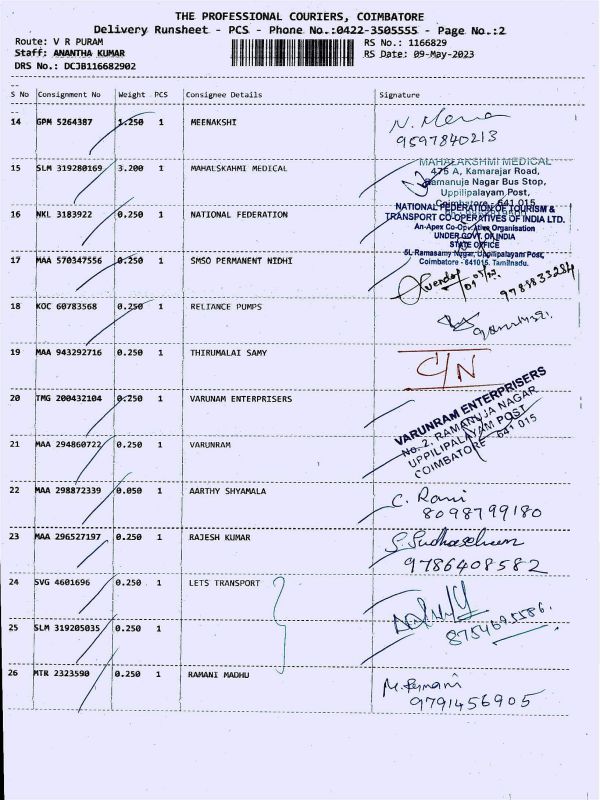 THE PROFESSIONAL COURIERS, COIMBATORE
Delivery Runsheet - PCS - Phone No.:0422-3505555 - Page No.:2
Route: V R PURAM RS No.: 1166829
Staff: ANANTHA KUMAR RS Date: 09-May-2023
DRS No.: DCJB116682902
S No Consignment No Weight PCS Consignee Details Signature
14 GPM 5264387 1.250 1 MEENAKSHI
9597840213
15 SLM 319280169 3.200 1 MAHALSKAHMI MEDICAL
MAHALAKSHMI MEDICAL
475 A, Kamarajar Road,
Ramanuja Nagar Bus Stop,
Uppilipalayam Post,
Coimbatore - 641 015
16 NKL 3183922 0.250 1 NATIONAL FEDERATION
NATIONAL FEDERATION OF TOURISM &
TRANSPORT CO-OPERATIVES OF INDIA LTD.
An-Apex Co-Operative Organisation
UNDER GOVT. OF INDIA
STATE OFFICE
5L Ramasamy Nagar, Uppilipalayam Post,
Coimbatore - 641015. Tamilnadu.
17 MAA 570347556 0.250 1 SMSO PERMANENT NIDHI
18 KOC 60783568 0.250 1 RELIANCE PUMPS
19 MAA 943292716 0.250 1 THIRUMALAI SAMY
C/N
20 TMG 200432104 0.250 1 VARUNAM ENTERPRISERS
VARUNRAM ENTERPRISERS
No. 2, RAMANUJA NAGAR
UPPILIPALAYAM POST
COIMBATORE - 641 015
21 MAA 294860722 0.250 1 VARUNRAM
22 MAA 298872339 0.050 1 AARTHY SHYAMALA
C. Rani
8098799180
23 MAA 296527197 0.250 1 RAJESH KUMAR
9786408582
24 SVG 4601696 0.250 1 LETS TRANSPORT
25 SLM 319205035 0.250 1
26 MTR 2323590 0.250 1 RAMANI MADHU
M. Ramani
9791456905